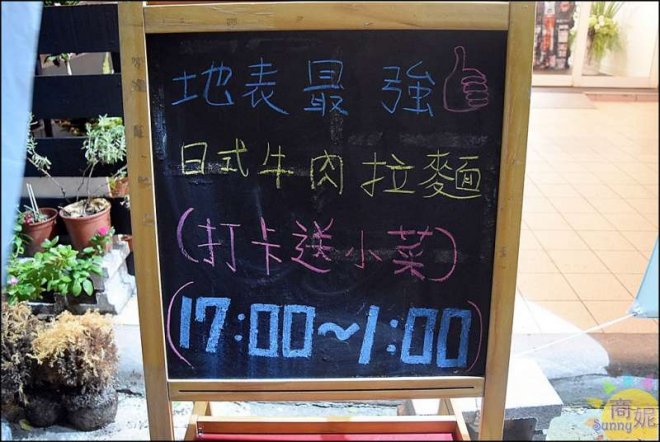 地表最強
日式牛肉拉麵
(打卡送小菜)
(17:00~1:00)
商妮
Sunny